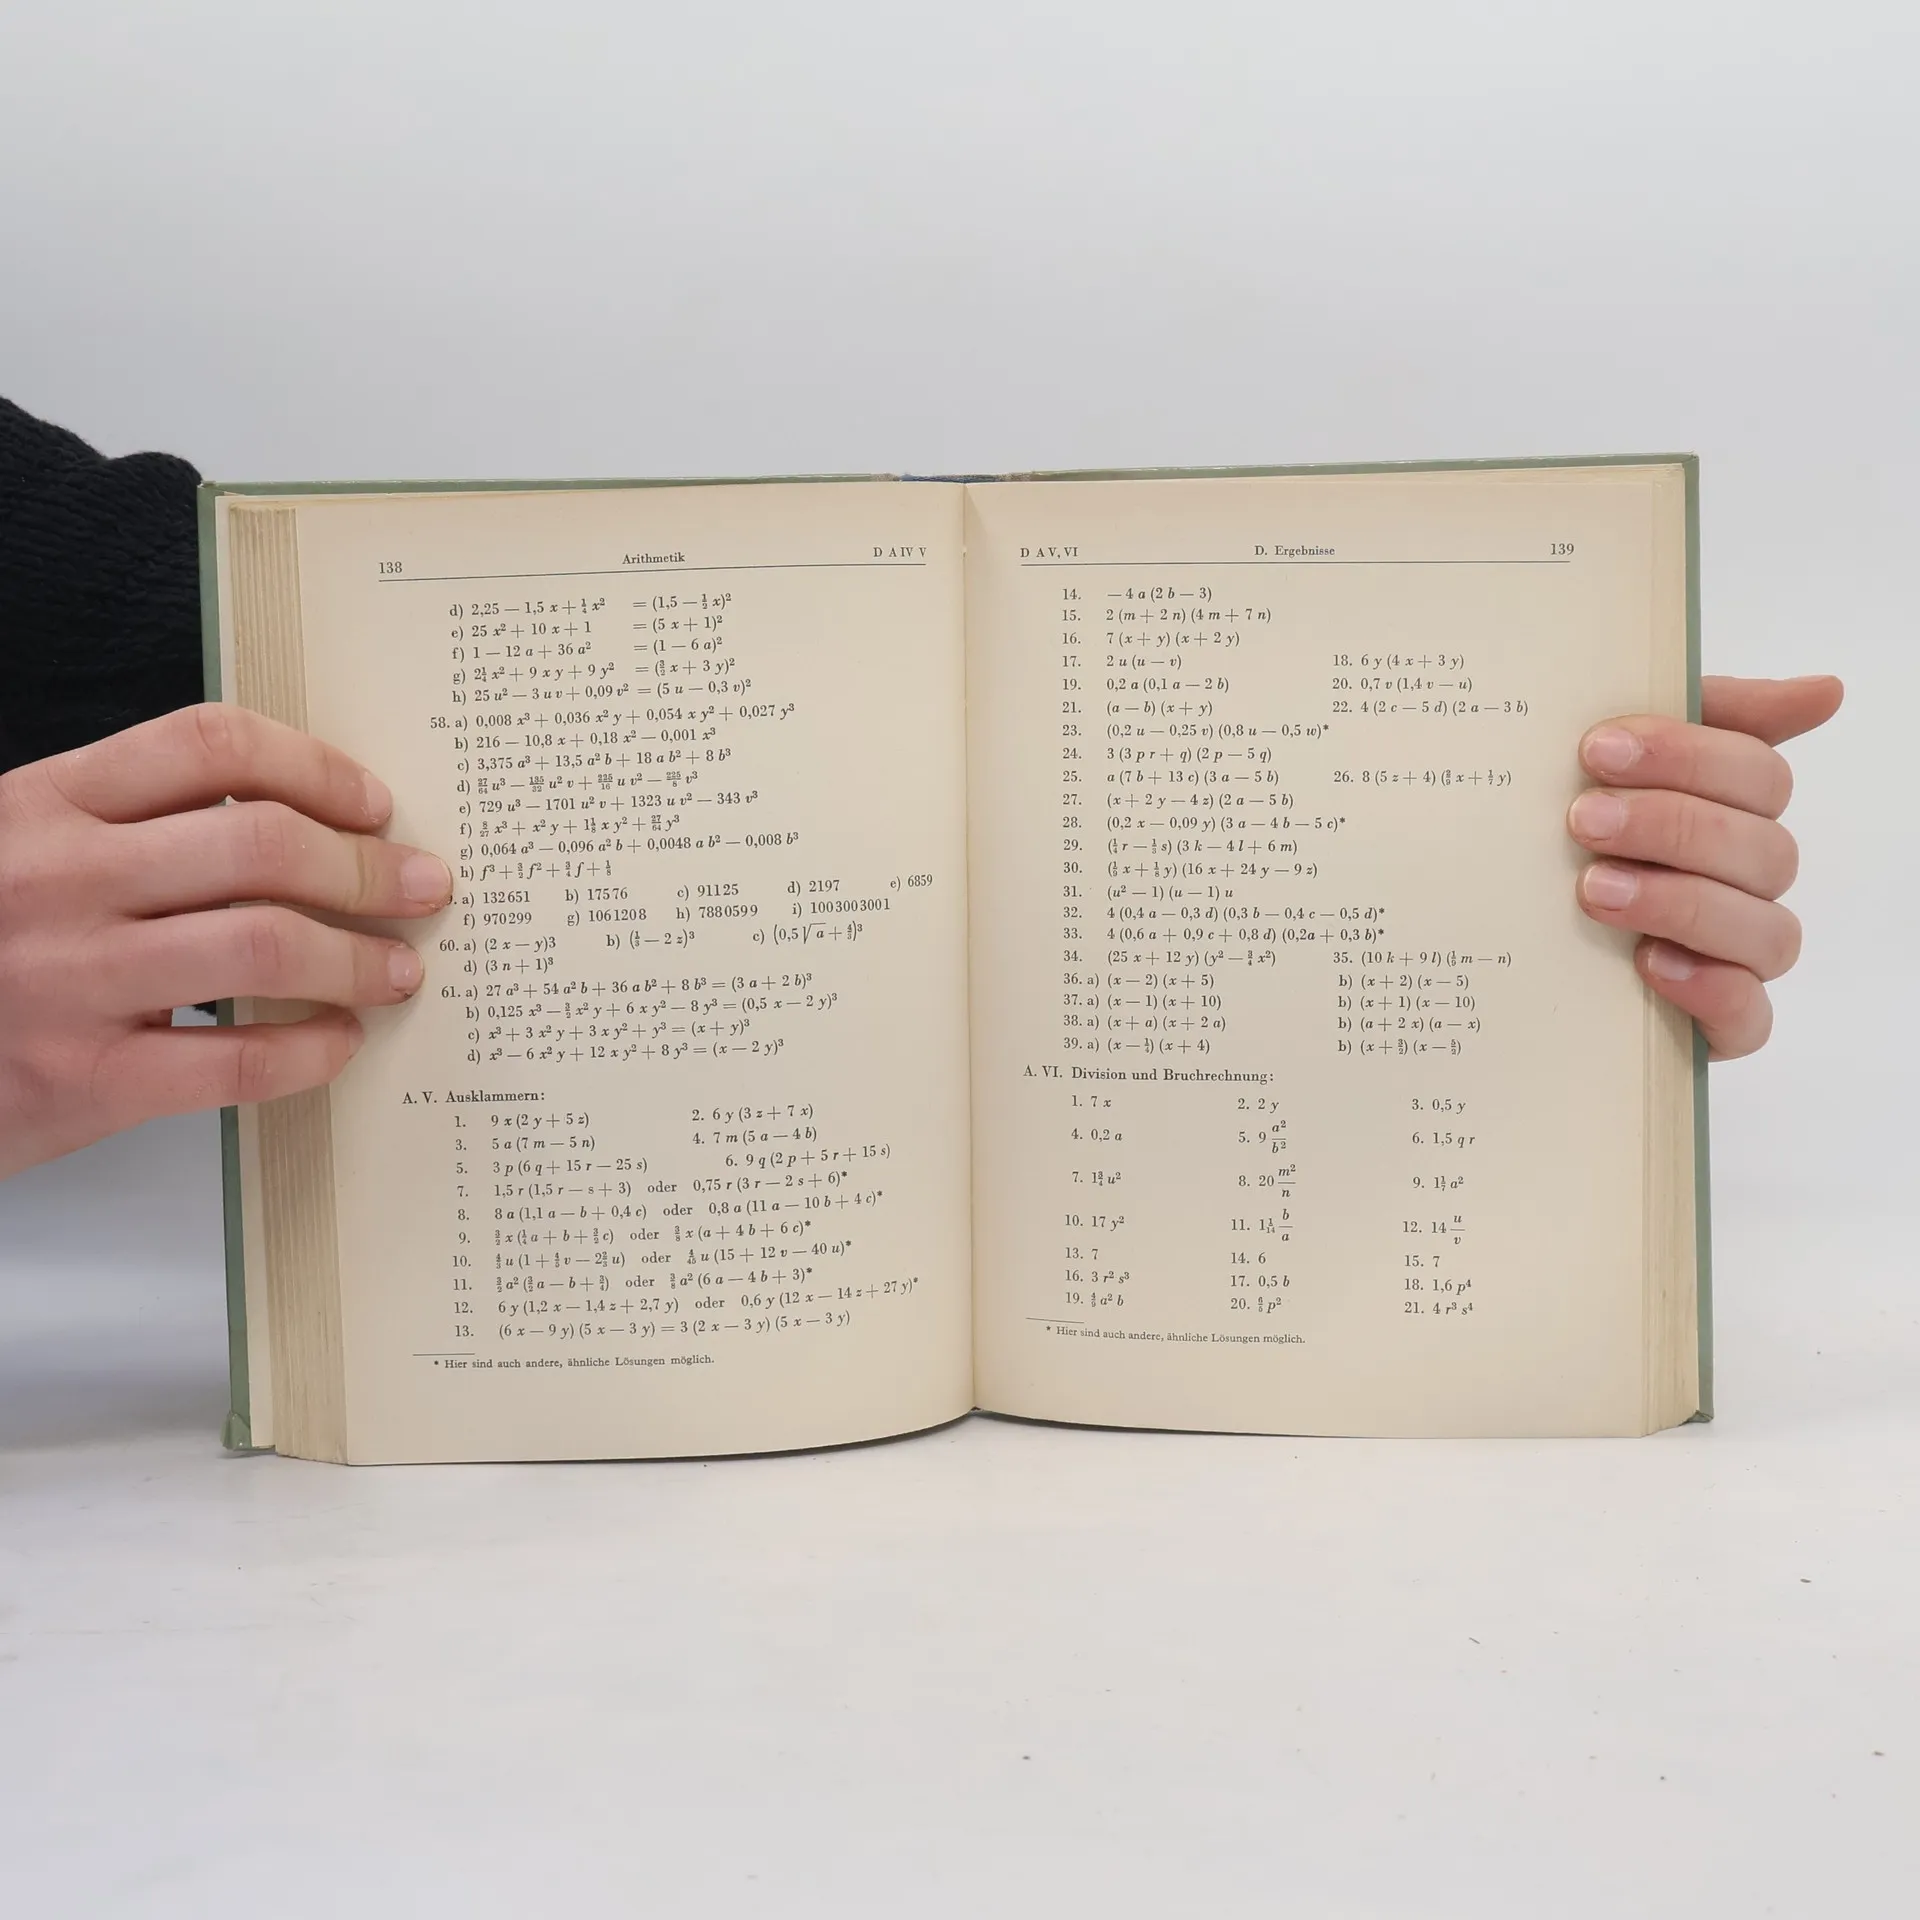 138 Arithmetik D A IV V
d) 2,25 — 1,5 x + ¼ x² = (1,5 — ½ x)²
e) 25 x² + 10 x + 1 = (5 x + 1)²
f) 1 — 12 a + 36 a² = (1 — 6 a)²
g) 2¼ x² + 9 x y + 9 y² = (3/2 x + 3 y)²
h) 25 u² — 3 u v + 0,09 v² = (5 u — 0,3 v)²
58. a) 0,008 x³ + 0,036 x² y + 0,054 x y² + 0,027 y³
b) 216 — 10,8 x + 0,18 x² — 0,001 x³
c) 3,375 a³ + 13,5 a² b + 18 a b² + 8 b³
d) 27/64 u³ — 135/32 u² v + 225/16 u v² — 225/8 v³
e) 729 u³ — 1701 u² v + 1323 u v² — 343 v³
f) 8/27 x³ + x² y + 1⅛ x y² + 27/64 y³
g) 0,064 a³ — 0,096 a² b + 0,0048 a b² — 0,008 b³
h) f³ + 3/2 f² + ¾ f + ⅛
a) 132651 b) 17576 c) 91125 d) 2197 e) 6859
f) 970299 g) 1061208 h) 7880599 i) 1003003001
60. a) (2 x — y)3 b) (⅓ — 2 z)³ c) (0,5 √a + 4/3)³
d) (3 n + 1)³
61. a) 27 a³ + 54 a² b + 36 a b² + 8 b³ = (3 a + 2 b)³
b) 0,125 x³ — 3/2 x² y + 6 x y² — 8 y³ = (0,5 x — 2 y)³
c) x³ + 3 x² y + 3 x y² + y³ = (x + y)³
d) x³ — 6 x² y + 12 x y² + 8 y³ = (x — 2 y)³
A. V. Ausklammern:
1. 9 x (2 y + 5 z) 2. 6 y (3 z + 7 x)
3. 5 a (7 m — 5 n) 4. 7 m (5 a — 4 b)
5. 3 p (6 q + 15 r — 25 s) 6. 9 q (2 p + 5 r + 15 s)
7. 1,5 r (1,5 r — s + 3) oder 0,75 r (3 r — 2 s + 6)*
8. 8 a (1,1 a — b + 0,4 c) oder 0,8 a (11 a — 10 b + 4 c)*
9. 3/2 x (¼ a + b + 3/2 c) oder 3/8 x (a + 4 b + 6 c)*
10. 4/3 u (1 + 4/5 v — 2⅔ u) oder 4/45 u (15 + 12 v — 40 u)*
11. 3/2 a² (3/2 a — b + ¾) oder 3/8 a² (6 a — 4 b + 3)*
12. 6 y (1,2 x — 1,4 z + 2,7 y) oder 0,6 y (12 x — 14 z + 27 y)*
13. (6 x — 9 y) (5 x — 3 y) = 3 (2 x — 3 y) (5 x — 3 y)
* Hier sind auch andere, ähnliche Lösungen möglich.
D A V, VI D. Ergebnisse 139
14. — 4 a (2 b — 3)
15. 2 (m + 2 n) (4 m + 7 n)
16. 7 (x + y) (x + 2 y)
17. 2 u (u — v) 18. 6 y (4 x + 3 y)
19. 0,2 a (0,1 a — 2 b) 20. 0,7 v (1,4 v — u)
21. (a — b) (x + y) 22. 4 (2 c — 5 d) (2 a — 3 b)
23. (0,2 u — 0,25 v) (0,8 u — 0,5 w)*
24. 3 (3 p r + q) (2 p — 5 q)
25. a (7 b + 13 c) (3 a — 5 b) 26. 8 (5 z + 4) (2/9 x + 1/7 y)
27. (x + 2 y — 4 z) (2 a — 5 b)
28. (0,2 x — 0,09 y) (3 a — 4 b — 5 c)*
29. (¼ r — ⅓ s) (3 k — 4 l + 6 m)
30. (1/9 x + ⅛ y) (16 x + 24 y — 9 z)
31. (u² — 1) (u — 1) u
32. 4 (0,4 a — 0,3 d) (0,3 b — 0,4 c — 0,5 d)*
33. 4 (0,6 a + 0,9 c + 0,8 d) (0,2a + 0,3 b)*
34. (25 x + 12 y) (y² — ¾ x²) 35. (10 k + 9 l) (1/6 m — n)
36. a) (x — 2) (x + 5) b) (x + 2) (x — 5)
37. a) (x — 1) (x + 10) b) (x + 1) (x — 10)
38. a) (x + a) (x + 2 a) b) (a + 2 x) (a — x)
39. a) (x — ¼) (x + 4) b) (x + 3/2) (x — 5/2)
A. VI. Division und Bruchrechnung:
1. 7 x 2. 2 y 3. 0,5 y
4. 0,2 a 5. 9 a²/b² 6. 1,5 q r
7. 1¾ u² 8. 20 m²/n 9. 1 1/7 a²
10. 17 y² 11. 1 1/14 b/a 12. 14 u/v
13. 7 14. 6 15. 7
16. 3 r² s³ 17. 0,5 b 18. 1,6 p⁴
19. 4/9 a² b 20. 6/5 p² 21. 4 r³ s⁴
* Hier sind auch andere, ähnliche Lösungen möglich.